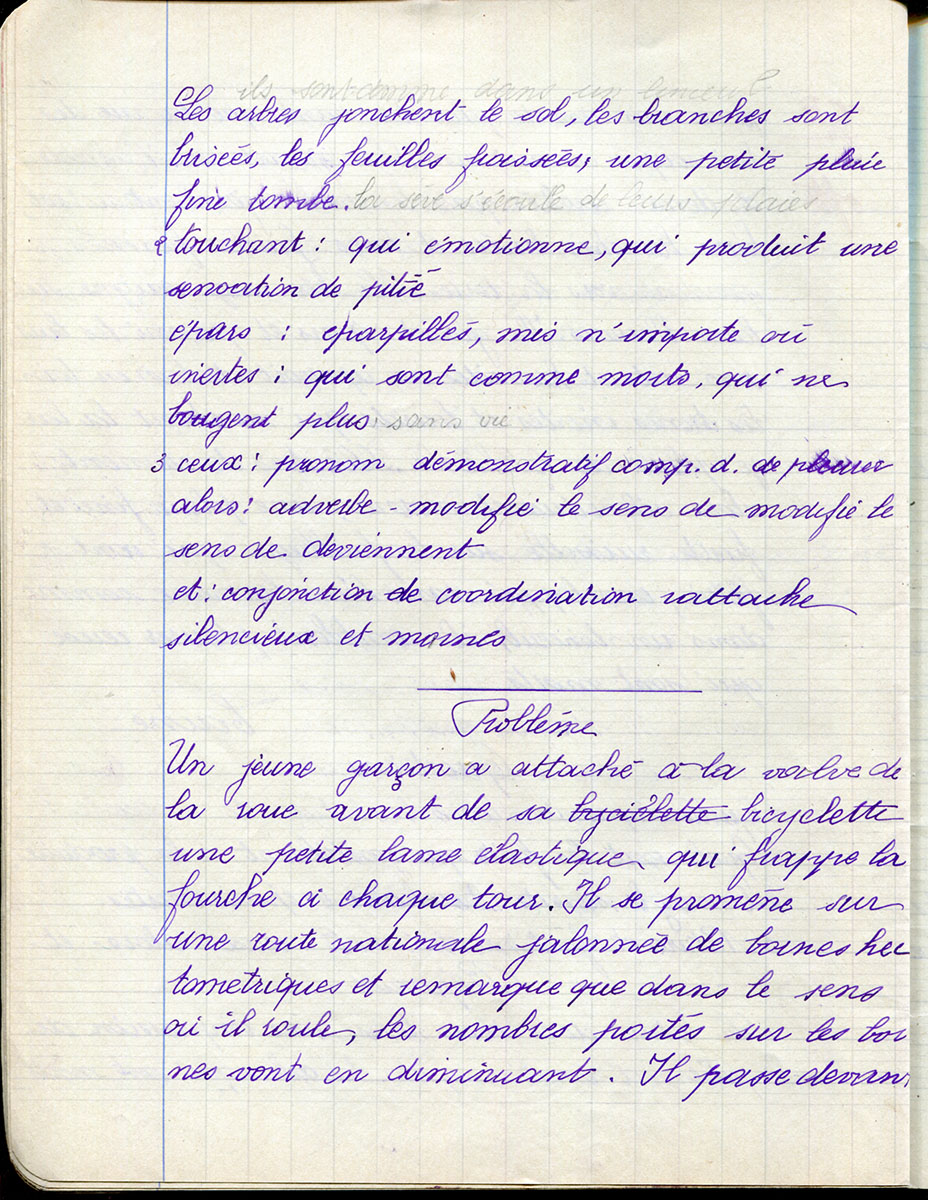 ils sont comme dans un linceul
Les arbres jonchent le sol, les branches sont
brisées, les feuilles froissées; une petite pluie
fine tombe. la sève s'écoule de leurs plaies
2 touchant : qui émotionne, qui produit une
sensation de pitié
épars : eparpillés, mis n'importe où
inertes : qui sont comme morts, qui ne
bougent plus sans vie
3 ceux : pronom démonstratif comp. d. de pleurer
alors : adverbe - modifie le sens de modifie le
sens de deviennent
et : conjonction de coordination rattache
silencieux et mornes
Problème
Un jeune garçon a attaché à la valve de
la roue avant de sa byciclette bicyclette
une petite lame élastique qui frappe la
fourche à chaque tour. Il se promène sur
une route nationale jalonnée de bornes hec
tometriques et remarque que dans le sens
où il roule, les nombres portés sur les bor
nes vont en diminuant. Il passe devant